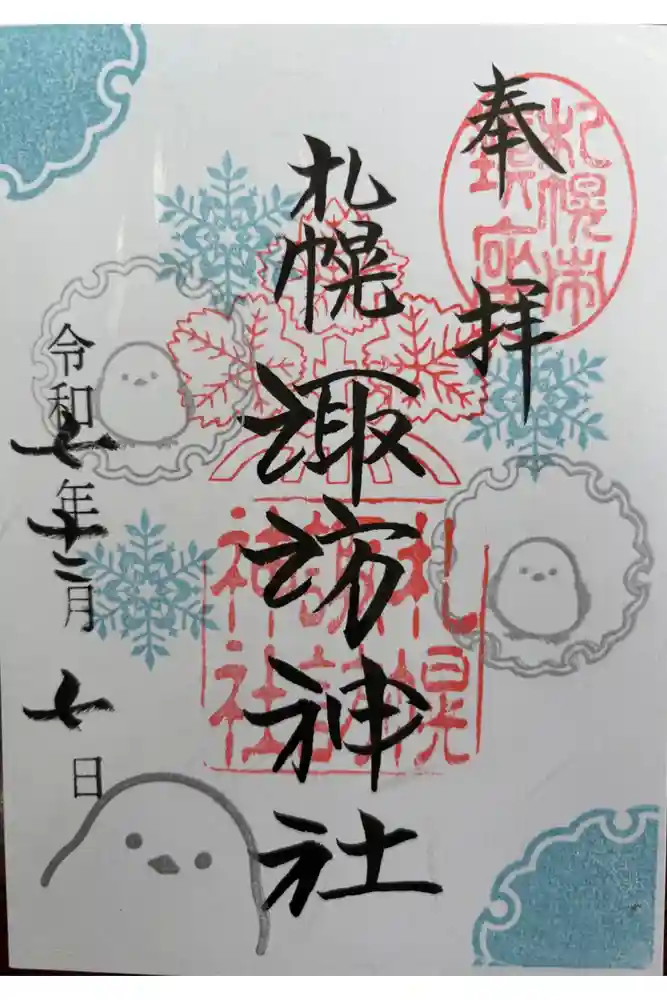 奉拝
札幌市
鎮座
札幌
諏訪神社
札幌
諏訪
神社
令和七年十二月七日